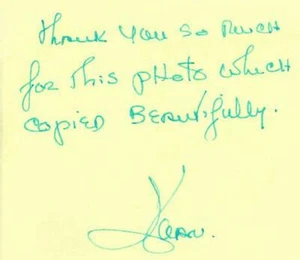 Thank you so much
for this photo which
copied Beautifully.
Jean.